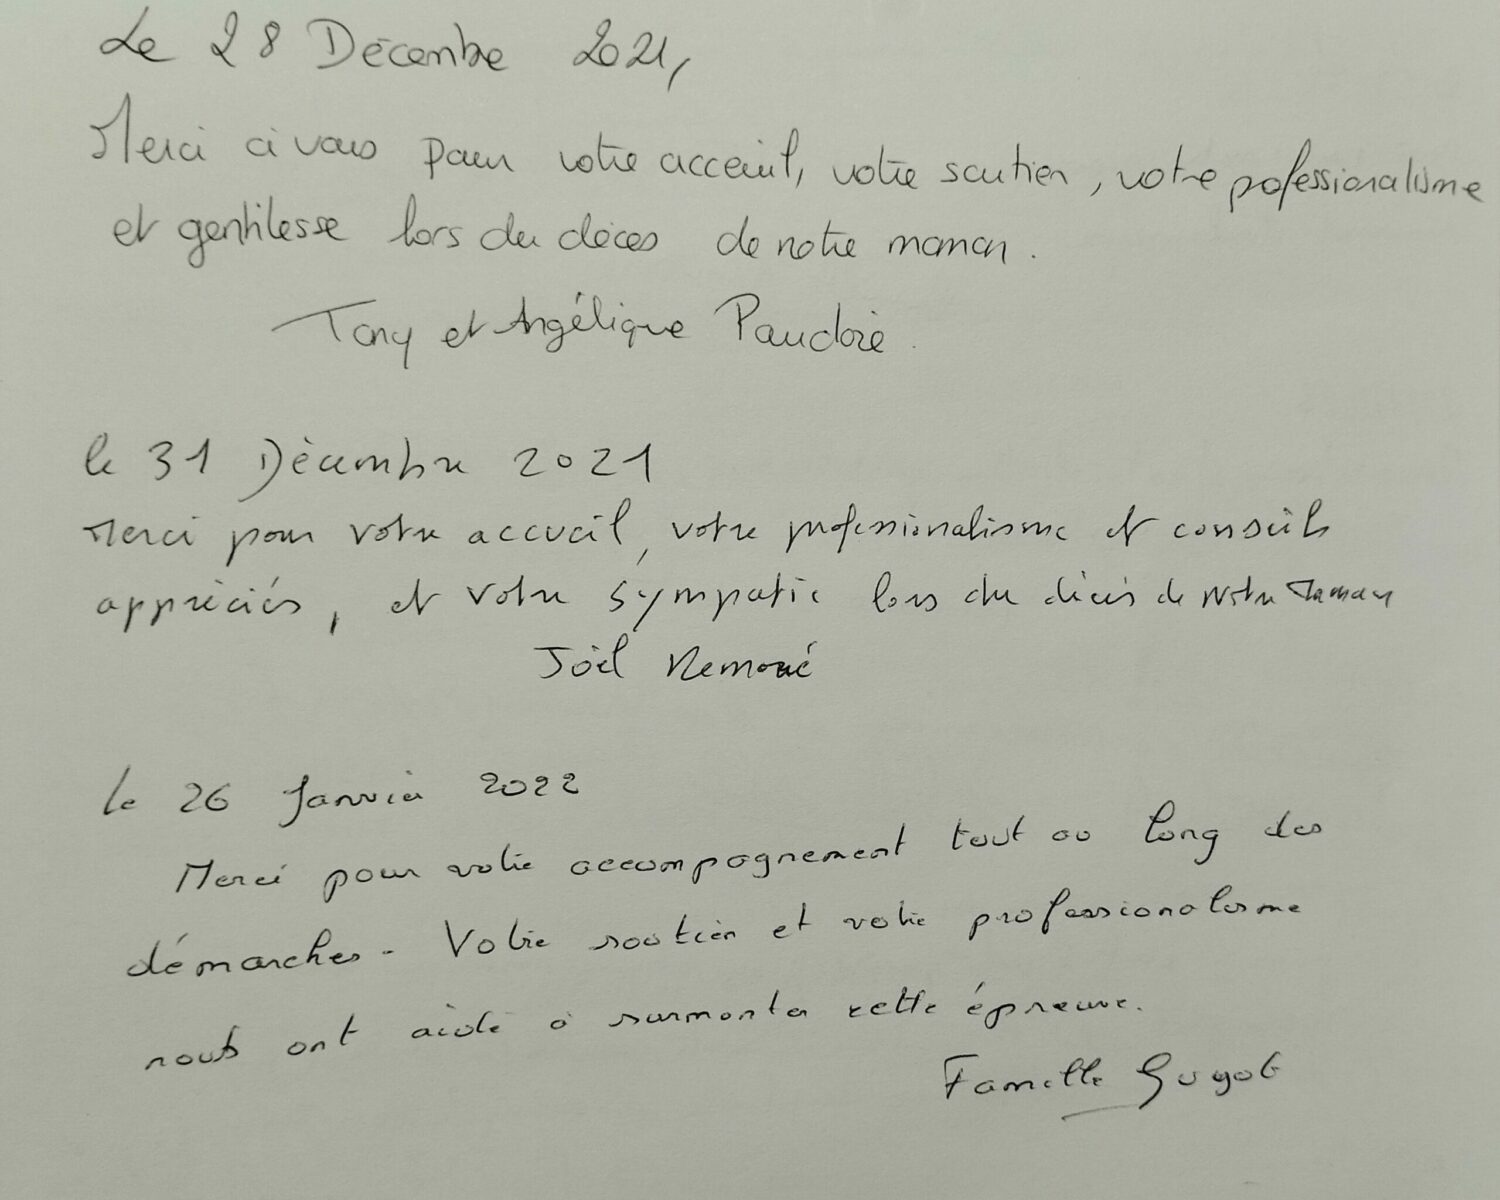 Le 28 Décembre 2021,
Merci à vous pour votre acceuil, votre soutien, votre pofessionalisme
et gentilesse lors du décès de notre maman.
Tony et Angélique
le 31 Décembre 2021
Merci pour votre accueil, votre professionnalisme et conseils
appréciés, et votre sympatie lors du décès de Notre Maman
Joël
le 26 Janvier 2022
Merci pour votre accompagnement tout au long des
démarches. Votre soutien et votre professionalisme
nous ont aidé à surmonter cette épreuve.
Famille Guyot